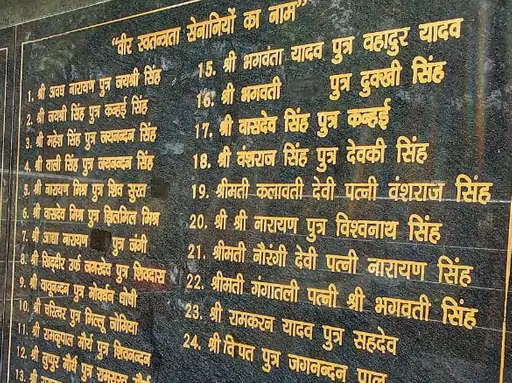 "वीर स्वतन्त्रता सेनानियों का नाम"
1. श्री अवध नारायण पुत्र जयश्री सिंह
2. श्री जयश्री सिंह पुत्र कन्हई सिंह
3. श्री महेश सिंह पुत्र जयनन्दन सिंह
4. श्री वाली सिंह पुत्र जयनन्दन सिंह
5. श्री नारायण मिश्र पुत्र शिव सुरत
6. श्री वासदेव मिश्र पुत्र झिलमिल मिश्र
7. श्री आद्या नारायण पुत्र जंगी
8. श्री उर्फ जगरदेव पुत्र शिवदास
9. श्री पुत्र गोवर्धन धोबी
10. श्री चरित्तर पुत्र मिल्लू नोनिया
11. श्री रामकृपाल मौर्य पुत्र शिवनन्दन
12. श्री मौर्य पुत्र रामसुरत मौर्य
13.
15. श्री भगवंता यादव पुत्र वहादुर यादव
16. श्री भगवती पुत्र दुक्खी सिंह
17. श्री वासदेव सिंह पुत्र कन्हई
18. श्री वंशराज सिंह पुत्र देवकी सिंह
19. श्रीमती कलावती देवी पत्नी वंशराज सिंह
20. श्री श्री नारायण पुत्र विश्वनाथ सिंह
21. श्रीमती नौरंगी देवी पत्नी नारायण सिंह
22. श्रीमती गंगातली पत्नी श्री भगवती सिंह
23. श्री रामकरन यादव पुत्र सहदेव
24. श्री विपत पुत्र जगनन्दन पाल